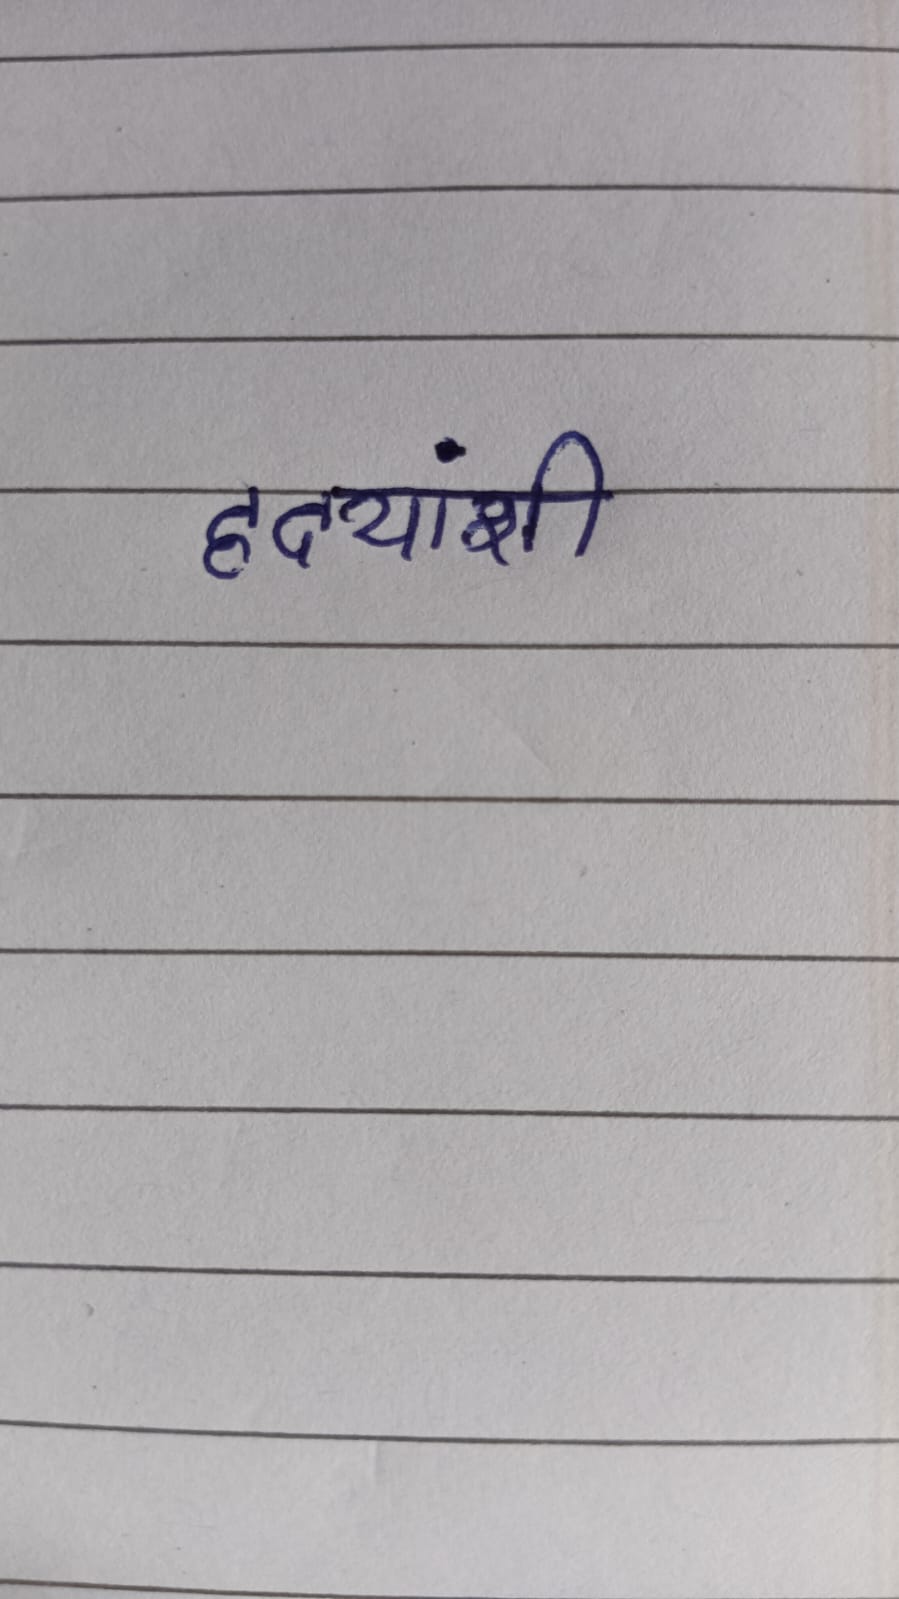 हृदयांशी